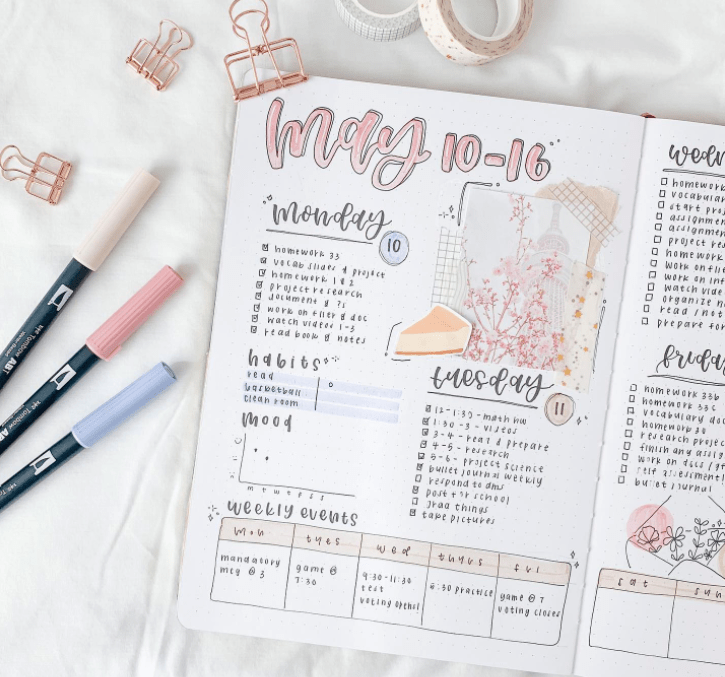 may 10-16
monday
10
homework 33
vocab slides & project
homework 1 & 2
project research
document & ?s
work on flier & doc
watch videos 1-3
read book & notes
habits
read
basketball
clean room
mood
m t w t f s s
tuesday
11
12-1:30 - math hw
1:30-3 - videos
3-4 - read & prepare
4-5 - research
5-6 - project science
bullet journal weekly
respond to dms
post for school
take pictures
weekly events
mon
tues
wed
thurs
fri
mandatory
mtg @ 3
game @
7:30
9:30-11:30
test
6:30 practice
game @ 7
voting closes
wedn
homework
vocabular
start pro
assignmen
assignmen
project re
homework
work on fli
work on inf
watch vide
organize n
read / not
prepare fo
friday
homework 33b
homework 33c
vocabulary doc
research projec
finish any assig
work on docs / 
self assessment
bullet journal
sat
sun
Tombow ABT
Tombow ABT
Tombow ABT